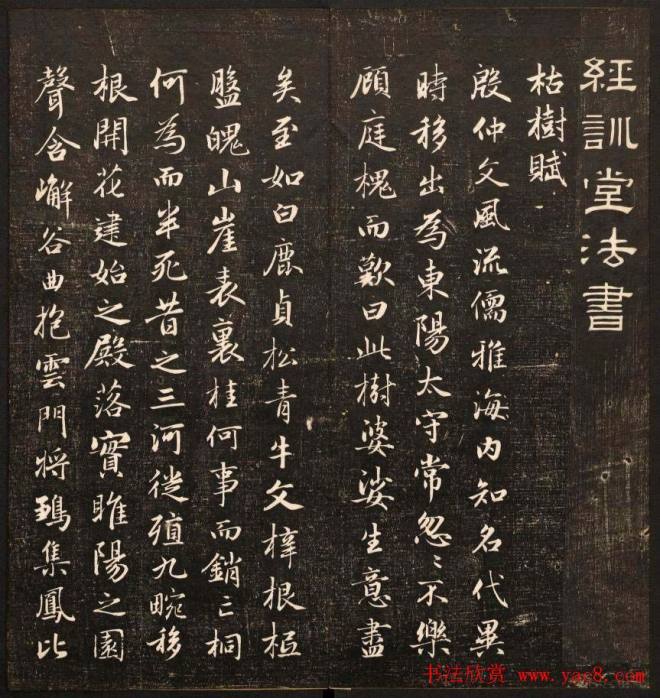 經訓堂法書
枯樹賦
殷仲文風流儒雅海内知名代異
時移出為東陽太守常忽〻不樂
顧庭槐而歎曰此樹婆娑生意盡
矣至如白鹿貞松青牛文梓根柢
盤魄山崖表裏桂何事而銷亡桐
何為而半死昔之三河徙殖九畹移
根開花建始之殿落實睢陽之園
聲含嶰谷曲抱雲門將鶵集鳳比
书法欣赏 www.yac8.com